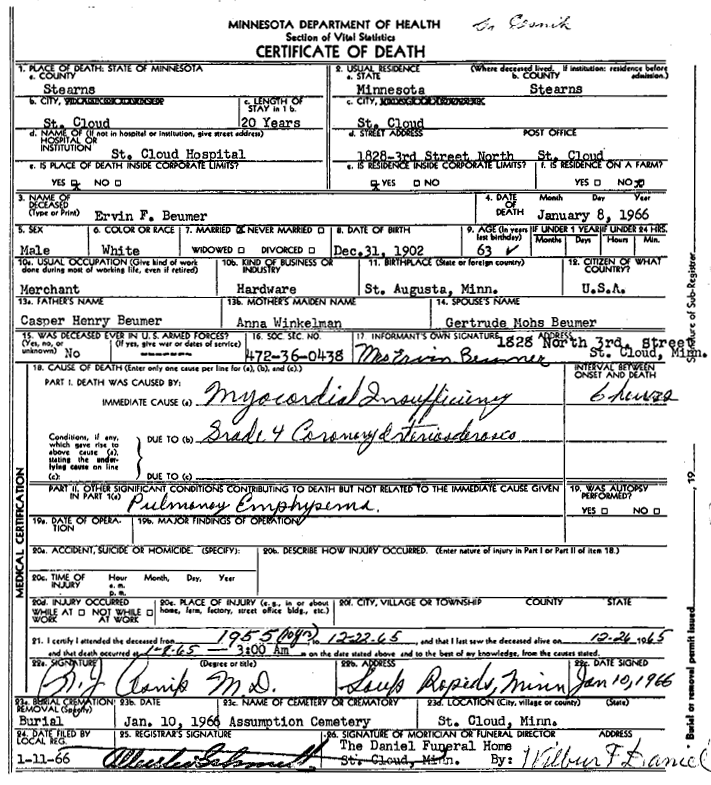 MINNESOTA DEPARTMENT OF HEALTH
Section of Vital Statistics
CERTIFICATE OF DEATH
1. PLACE OF DEATH: STATE OF MINNESOTA
a. COUNTY
Stearns
2. USUAL RESIDENCE (Where deceased lived. If institution: residence before admission.)
a. STATE b. COUNTY
Minnesota Stearns
b. CITY, c. LENGTH OF STAY in 1 b.
St. Cloud 20 Years
c. CITY,
St. Cloud
d. NAME OF (If not in hospital or institution, give street address)
HOSPITAL OR
INSTITUTION St. Cloud Hospital
d. STREET ADDRESS POST OFFICE
1828-3rd Street North St. Cloud
e. IS PLACE OF DEATH INSIDE CORPORATE LIMITS?
YES x NO ☐
e. IS RESIDENCE INSIDE CORPORATE LIMITS? f. IS RESIDENCE ON A FARM?
x YES ☐ NO YES ☐ NO x
3. NAME OF DECEASED (Type or Print) Ervin F. Beumer
4. DATE OF DEATH Month Day Year
January 8, 1966
5. SEX 6. COLOR OR RACE 7. MARRIED x NEVER MARRIED ☐ 8. DATE OF BIRTH 9. AGE (In years last birthday) IF UNDER 1 YEAR IF UNDER 24 HRS.
Months Days Hours Min.
Male White WIDOWED ☐ DIVORCED ☐ Dec.31, 1902 63 ✓
10a. USUAL OCCUPATION (Give kind of work done during most of working life, even if retired) 10b. KIND OF BUSINESS OR INDUSTRY 11. BIRTHPLACE (State or foreign country) 12. CITIZEN OF WHAT COUNTRY?
Merchant Hardware St. Augusta, Minn. U.S.A.
13a. FATHER'S NAME 13b. MOTHER'S MAIDEN NAME 14. SPOUSE'S NAME
Casper Henry Beumer Anna Winkelman Gertrude Mohs Beumer
15. WAS DECEASED EVER IN U.S. ARMED FORCES? 16. SOC. SEC. NO. 17 INFORMANT'S OWN SIGNATURE ADDRESS
(Yes, no, or unknown) (If yes, give war or dates of service) 1828 North 3rd. street
No ------ 472-36-0438 Mrs Ervin Beumer St. Cloud, Minn.
18. CAUSE OF DEATH (Enter only one cause per line for (a), (b), and (c).) INTERVAL BETWEEN ONSET AND DEATH
PART I. DEATH WAS CAUSED BY:
IMMEDIATE CAUSE (a) Myocordial Insufficiency 6 hours
Conditions, if any, which gave rise to above cause (a), stating the underlying cause on line (c):
DUE TO (b) Grade 4 Coronary
DUE TO (c)
PART II. OTHER SIGNIFICANT CONDITIONS CONTRIBUTING TO DEATH BUT NOT RELATED TO THE IMMEDIATE CAUSE GIVEN IN PART 1(a)
Pulmonary Emphysema.
19. WAS AUTOPSY PERFORMED?
YES ☐ NO ☐
19a. DATE OF OPERATION 19b. MAJOR FINDINGS OF OPERATION
20a. ACCIDENT, SUICIDE OR HOMICIDE. (SPECIFY): 20b. DESCRIBE HOW INJURY OCCURRED. (Enter nature of injury in Part I or Part II of item 18.)
20c. TIME OF INJURY Hour Month, Day, Year
a. m.
p. m.
20d. INJURY OCCURRED
WHILE AT WORK ☐ NOT WHILE AT WORK ☐
20e. PLACE OF INJURY (e.g., in or about home, farm, factory, street office bldg., etc.) 20f. CITY, VILLAGE OR TOWNSHIP COUNTY STATE
21. I certify I attended the deceased from 1955 (10 yrs) to 12-22-65, and that I last saw the deceased alive on 12-26 1965
and that death occurred at 1-8-65 - 3:00 Am on the date stated above and to the best of my knowledge, from the causes stated.
22a. SIGNATURE (Degree or title) 22b. ADDRESS 22c. DATE SIGNED
M.D. Sauk Rapids, Minn Jan 10, 1966
23a. BURIAL CREMATION REMOVAL (Specify) 23b. DATE 23c. NAME OF CEMETERY OR CREMATORY 23d. LOCATION (City, village or county) (State)
Burial Jan. 10, 1966 Assumption Cemetery St. Cloud, Minn.
24. DATE FILED BY LOCAL REG. 25. REGISTRAR'S SIGNATURE 26. SIGNATURE OF MORTICIAN OR FUNERAL DIRECTOR ADDRESS
The Daniel Funeral Home
1-11-66 St. Cloud, Minn. By: Wilbur F Daniel
MEDICAL CERTIFICATION
Burial or removal permit issued 19 Signature of Sub-Registrar